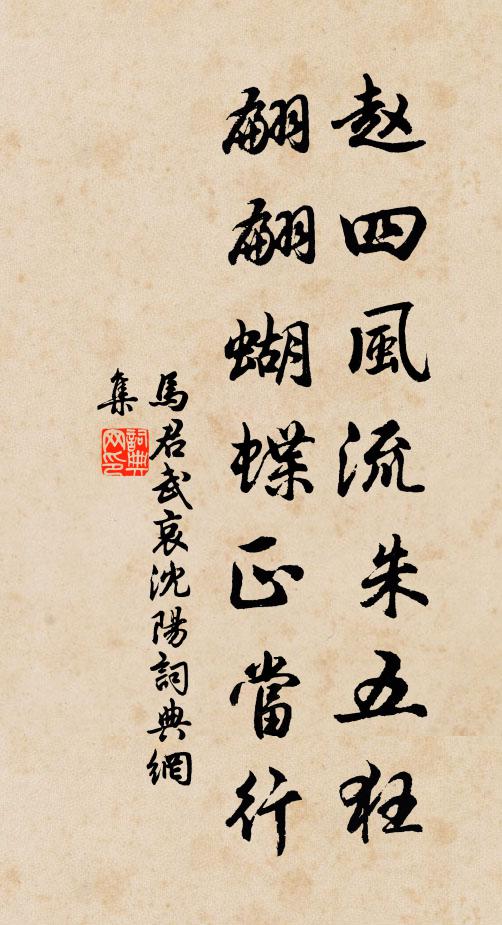 赵四風流朱五狂
翩翩蝴蝶正當行
馬君武哀沈陽詞典網
集
詞典網印